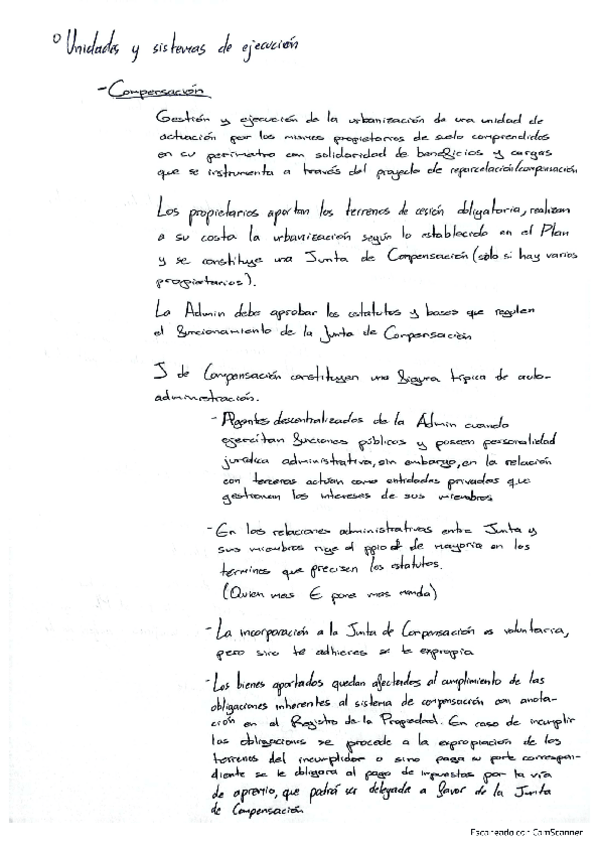 ° Unidades y sistemas de ejecución
- Compensación
Gestión y ejecución de la urbanización de una unidad de
actuación por los mismos propietarios de suelo comprendidos
en su perímetro con solidaridad de beneficios y cargas
que se instrumenta a través del proyecto de reparcelación/compensación
Los propietarios aportan los terrenos de cesión obligatoria, realizan
a su costa la urbanización según lo establecido en el Plan
y se constituye una Junta de Compensación (sólo si hay varios
propietarios).
La Admin debe aprobar los estatutos y bases que regulen
el funcionamiento de la Junta de Compensación
J de Compensación constituyen una figura típica de auto-
administración.
- Agentes descentralizados de la Admin cuando
ejercitan funciones públicas y poseen personalidad
jurídica administrativa, sin embargo, en la relación
con terceros actúan como entidades privadas que
gestionan los intereses de sus miembros
- En las relaciones administrativas entre Junta y
sus miembros rige el ppio de mayoría en los
términos que precisen los estatutos.
(Quien mas € pone mas manda)
- La incorporación a la Junta de Compensación es voluntaria,
pero si no te adhieres se te expropia
- Los bienes aportados quedan afectados al cumplimiento de las
obligaciones inherentes al sistema de compensación con anota-
ción en el Registro de la Propiedad. En caso de incumplir
las obligaciones se procede a la expropiación de los
terrenos del incumplidor o sino paga su parte correspon-
diente se le obligara al pago de impuestos por la vía
de apremio, que podrá ser delegada a favor de la Junta
de Compensación
Escaneado con CamScanner